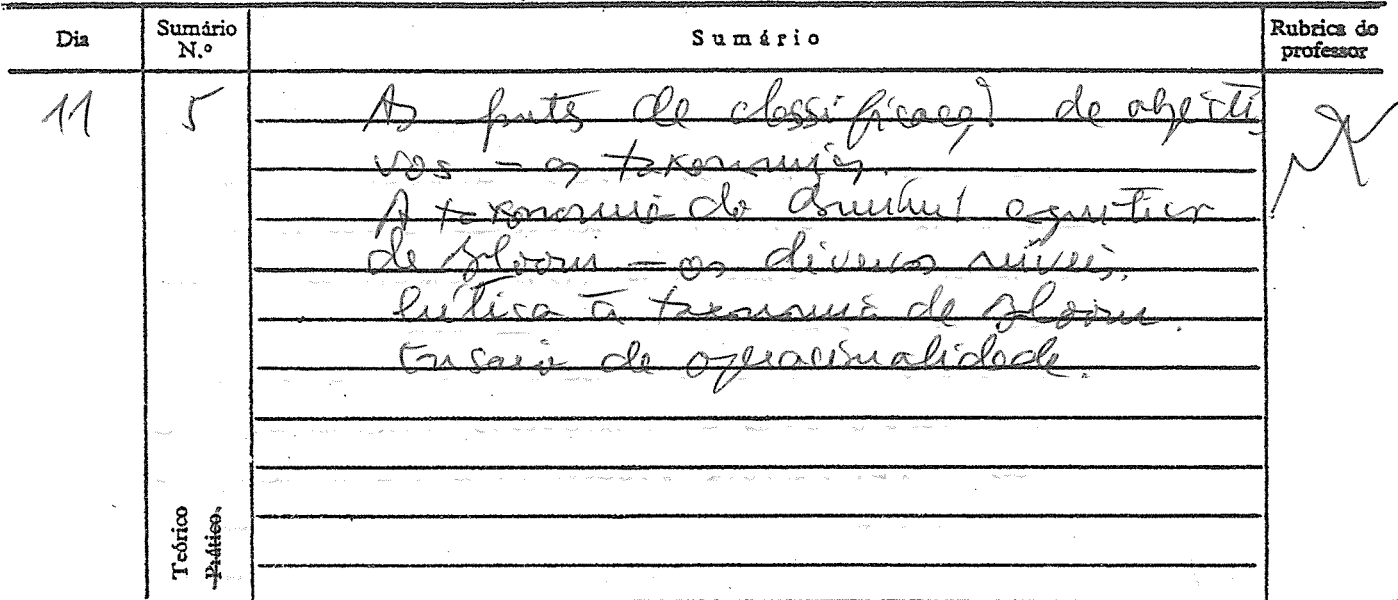 Dia
Sumário N.º
Sumário
Rubrica do professor
11
5
As de classificação de objecti
vos – as taxonomias.
A taxonomia do domínio cognitivo
de Bloom – os diversos níveis.
Crítica à taxonomia de Bloom.
Ensaio de operacionalidade.
Teórico
Prático.